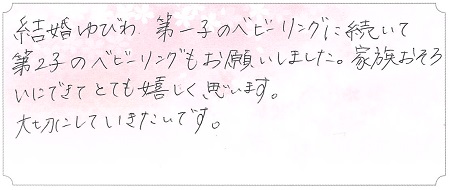 結婚ゆびわ、第一子のベビーリングに続いて
第2子のベビーリングもお願いしました。家族おそろ
いにできてとても嬉しく思います。
大切にしていきたいです。